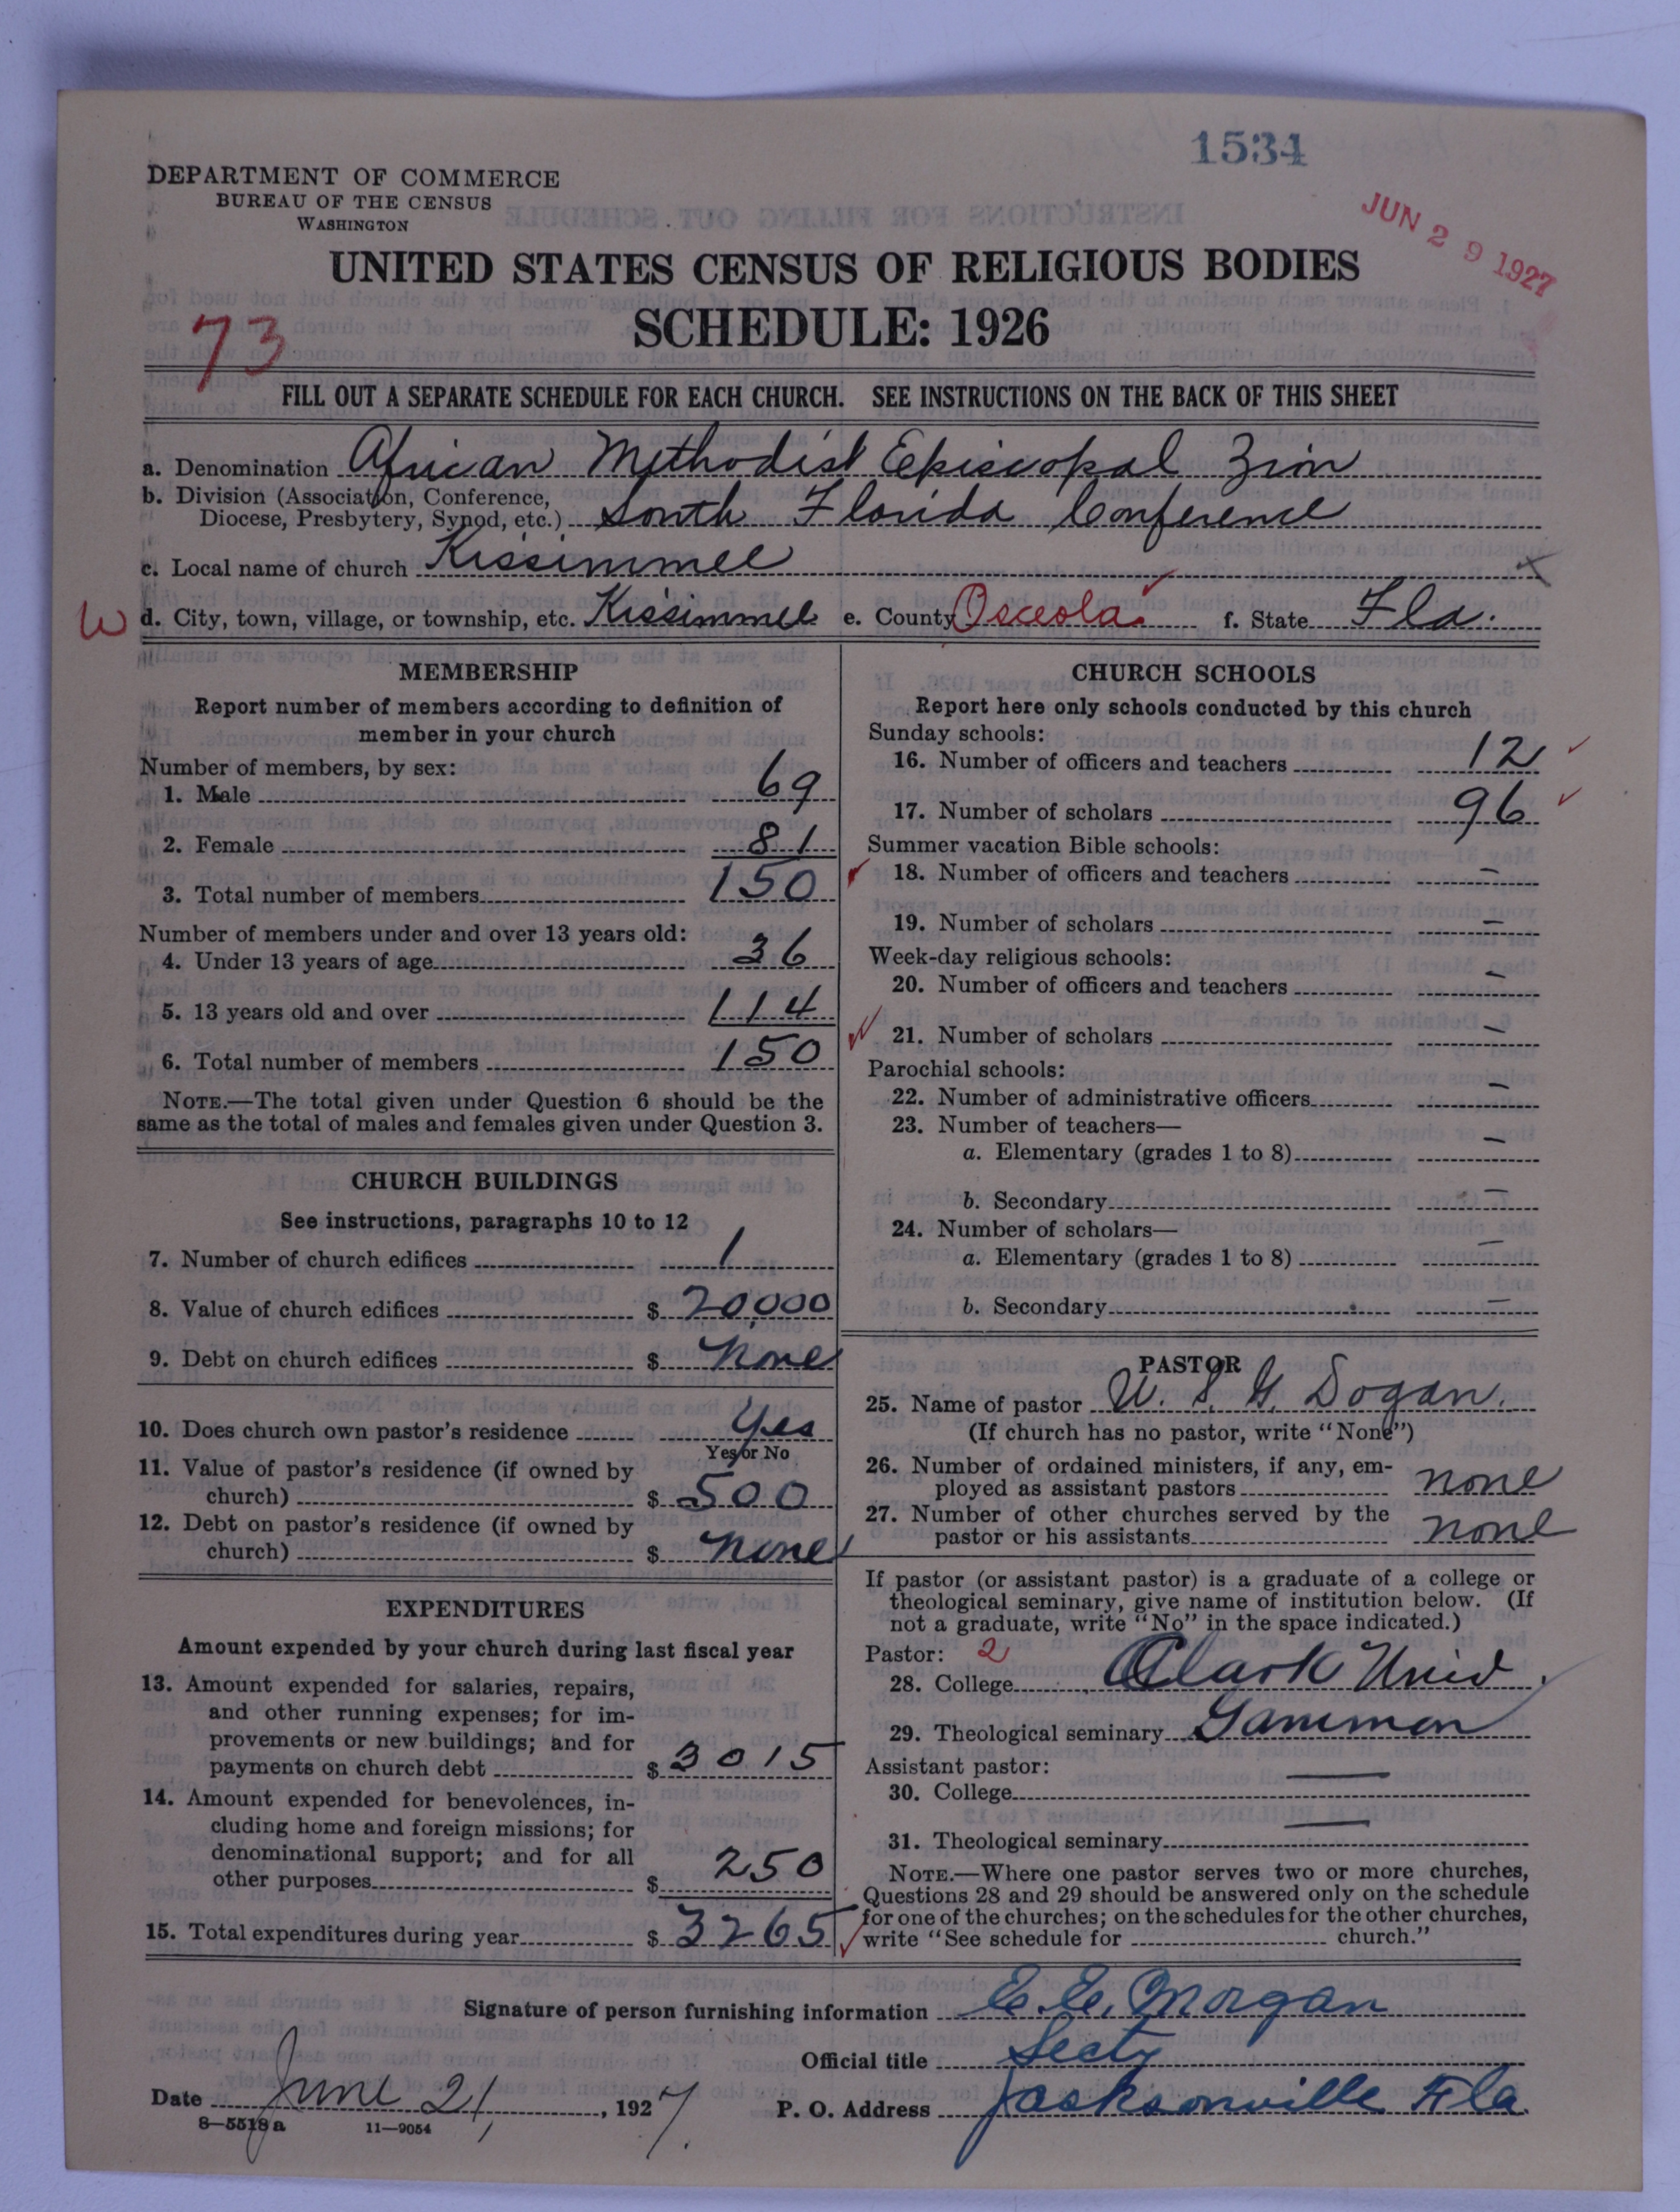 1534
DEPARTMENT OF COMMERCE
BUREAU OF THE CENSUS
WASHINGTON
JUN 29 1927
UNITED STATES CENSUS OF RELIGIOUS BODIES
73
SCHEDULE: 1926
FILL OUT A SEPARATE SCHEDULE FOR EACH CHURCH. SEE INSTRUCTIONS ON THE BACK OF THIS SHEET
a. Denomination African Methodist Episcopal Zion
b. Division (Association, Conference,
Diocese, Presbytery, Synod, etc.) South Florida Conference
c. Local name of church Kissimmee
W d. City, town, village, or township, etc. Kissimmee e. County Osceola f. State Fla.
MEMBERSHIP
Report number of members according to definition of
member in your church
Number of members, by sex:
1. Male 69
2. Female 81
3. Total number of members 150
Number of members under and over 13 years old:
4. Under 13 years of age 36
5. 13 years old and over 114
6. Total number of members 150
NOTE.—The total given under Question 6 should be the
same as the total of males and females given under Question 3.
CHURCH BUILDINGS
See instructions, paragraphs 10 to 12
7. Number of church edifices 1
8. Value of church edifices $ 20,000
9. Debt on church edifices $ None
10. Does church own pastor's residence Yes
Yes or No
11. Value of pastor's residence (if owned by
church) $ 500
12. Debt on pastor's residence (if owned by
church) $ None
EXPENDITURES
Amount expended by your church during last fiscal year
13. Amount expended for salaries, repairs,
and other running expenses; for im-
provements or new buildings; and for
payments on church debt $ 3015
14. Amount expended for benevolences, in-
cluding home and foreign missions; for
denominational support; and for all
other purposes $ 250
15. Total expenditures during year $ 3265
CHURCH SCHOOLS
Report here only schools conducted by this church
Sunday schools:
16. Number of officers and teachers 12
17. Number of scholars 96
Summer vacation Bible schools:
18. Number of officers and teachers —
19. Number of scholars —
Week-day religious schools:
20. Number of officers and teachers —
21. Number of scholars —
Parochial schools:
22. Number of administrative officers —
23. Number of teachers—
a. Elementary (grades 1 to 8) —
b. Secondary —
24. Number of scholars—
a. Elementary (grades 1 to 8) —
b. Secondary —
PASTOR
25. Name of pastor W. S. G. Dogan.
(If church has no pastor, write "None")
26. Number of ordained ministers, if any, em-
ployed as assistant pastors none
27. Number of other churches served by the
pastor or his assistants none
If pastor (or assistant pastor) is a graduate of a college or
theological seminary, give name of institution below. (If
not a graduate, write "No" in the space indicated.)
Pastor: 2
28. College Clark Univ.
29. Theological seminary Gammon
Assistant pastor:
30. College —
31. Theological seminary —
NOTE.—Where one pastor serves two or more churches,
Questions 28 and 29 should be answered only on the schedule
for one of the churches; on the schedules for the other churches,
write "See schedule for church."
Signature of person furnishing information E. E. Morgan
Official title Secty
Date June 21, 1927. P. O. Address Jacksonville Fla.
8—5518a 11—9054